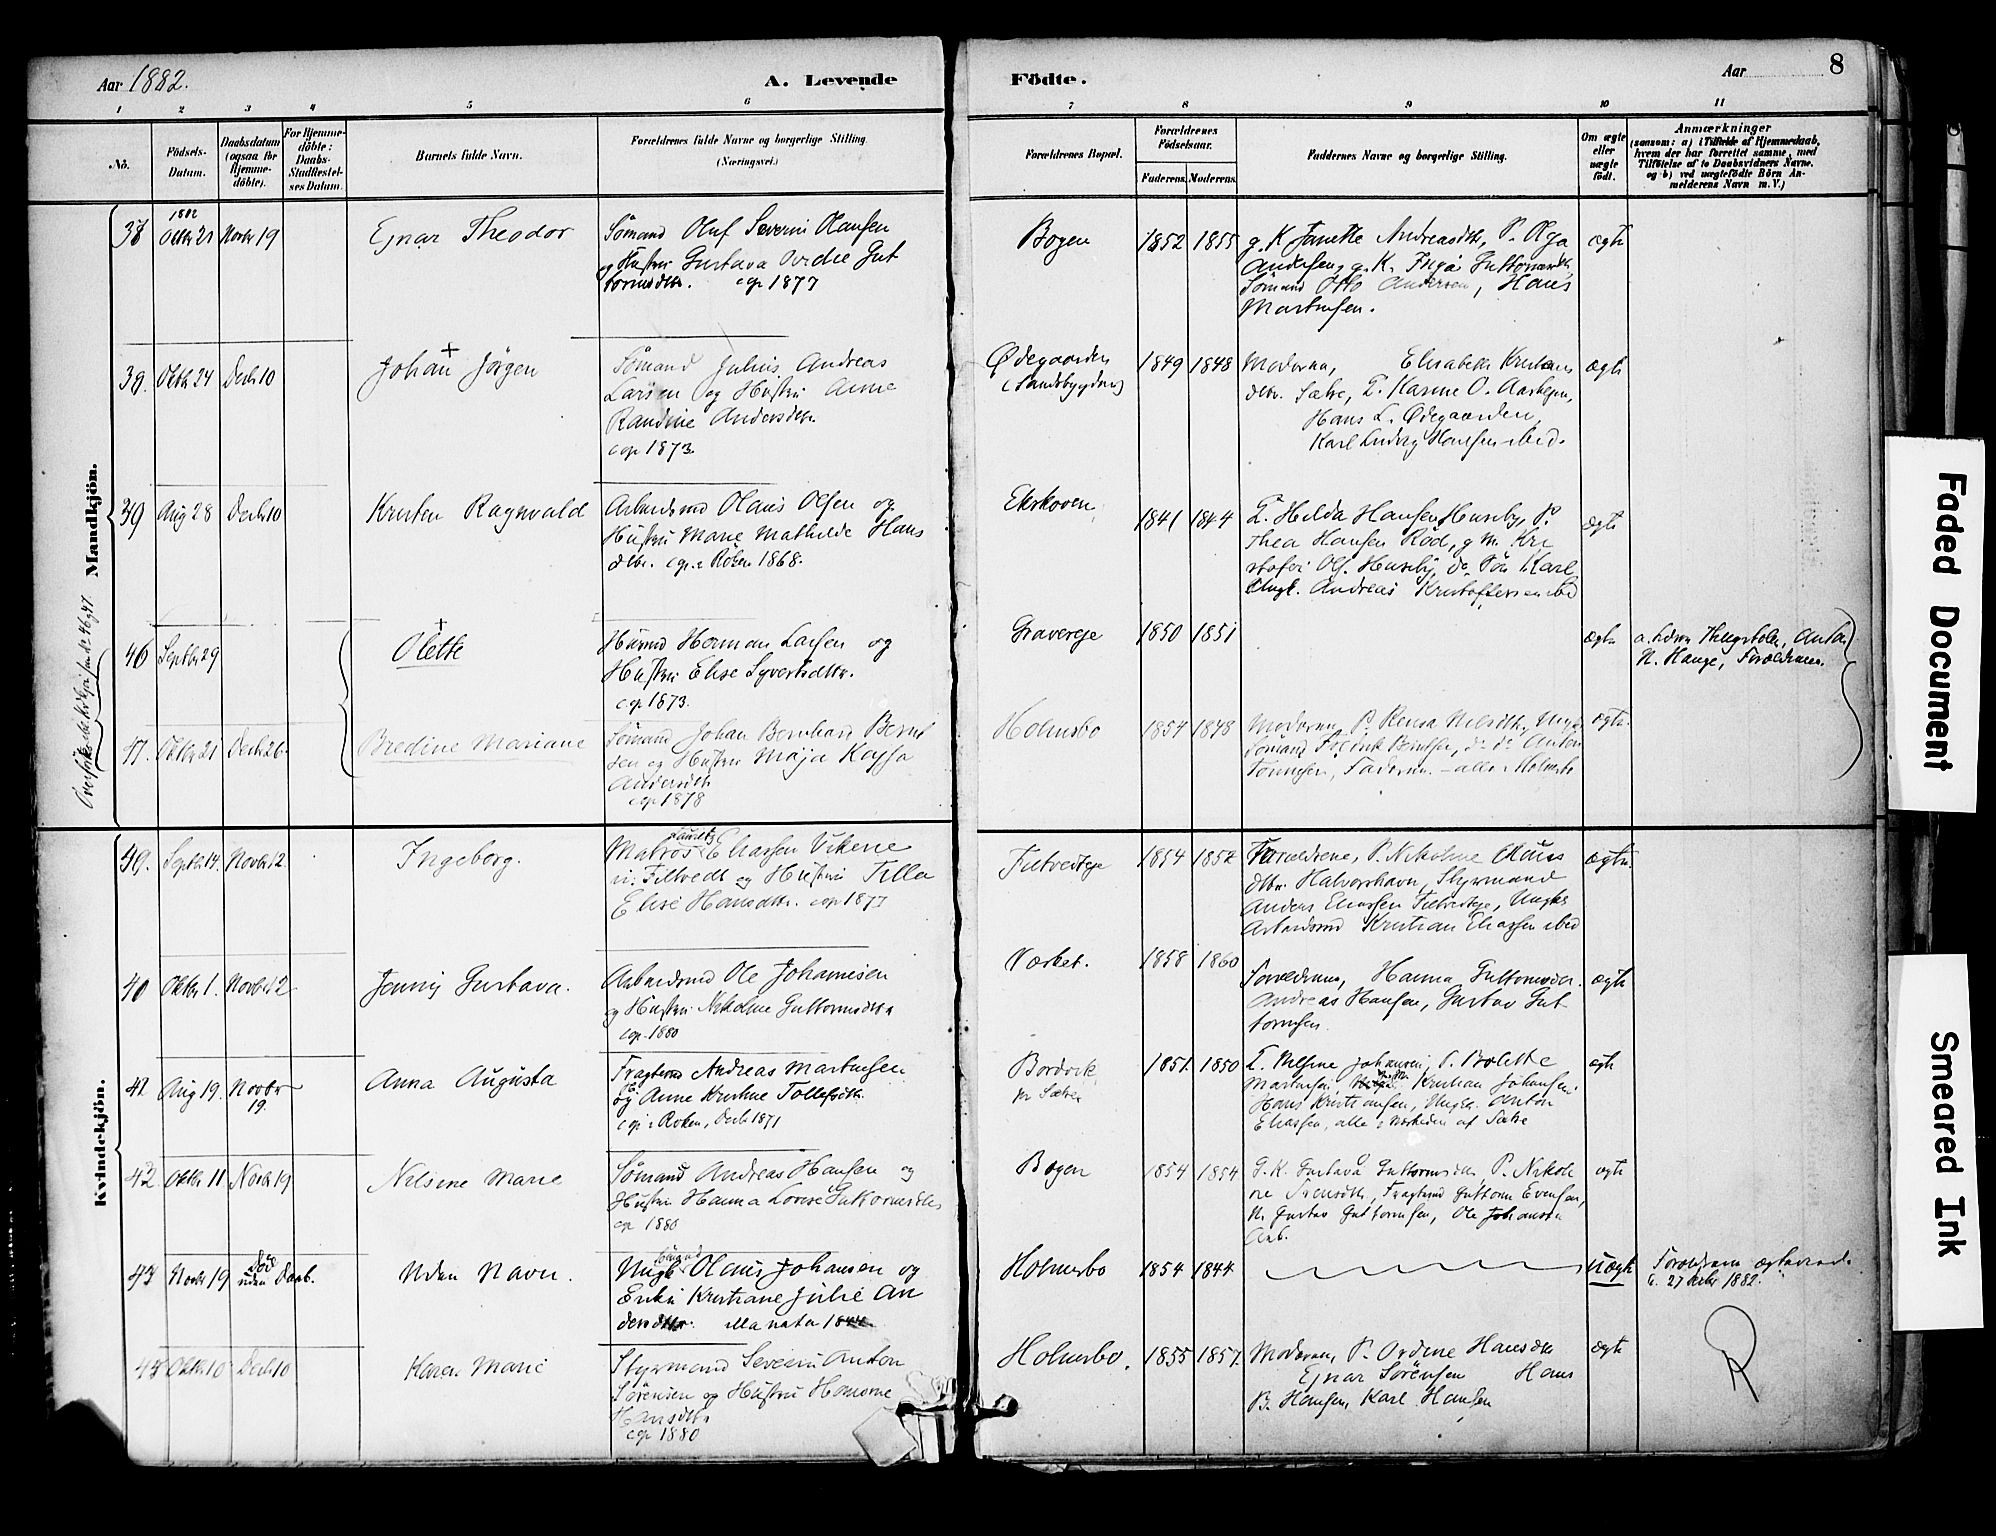 Aar 1882.
A. Levende
Födte.
Aar
8
1 2 3 4 5 6 7 8 9 10 11
No.
Födsels-Datum.
Daabsdatum (ogsaa for Hjemme-döbte).
For Hjemme-döbte: Daabs-Stadfæstel-ses Datum.
Barnets fulde Navn.
Forældrenes fulde Navne og borgerlige Stilling
(Næringsvei.)
Forældrenes Bopæl.
Forældrenes Födselsaar.
Faderens. Moderens.
Faddernes Navne og borgerlige Stilling.
Om ægte eller uægte födt.
Anmærkninger
(saasom: a) i Tilfælde af Hjemmedaab,
hvem der har forrettet samme, med
Tilföielse af to Daabsvidners Navne.
og b) ved uægtefödte Börn An-
melderens Navn m. V.)
Mandkjön.
38 1882 Oktbr 21 Novbr 19 Ejnar Theodor
Sömand Oluf Severin Olausen
og Hustru Gustava Ovidie Gut
tormsdtr. cop 1877
Bogen 1852 1855
g. K. Janette Andreasdtr, P. Olga
Andersen, g. K. Inga Guttormsdtr,
Sömand Otto Andersen, Hans
Martinsen.
ægte
39. Oktbr 24 Decbr 10 Johan Jörgen
Sömand Julius Andreas
Larsen og Hustru Anne
Randine Andersdtr.
cop 1873.
Ødegaarden
(Sandsbygden)
1849 1848
Moderen, Elisabeth Kristians
dtr. Sætre, P. Karine O. Aashegen,
Hans L. Ødegaarden,
Karl Ludvig Hansen ibid.
ægte
39 Aug 28 Decbr 10 Kristen Ragnvald
Arbeidsmd Olaus Olsen og
Hustru Marie Mathilde Hans
dtr. cop. i Röken 1868.
Ekskoven 1841 1844
P. Hilda Hansen Huseby, P.
Thea Hansen Röd, g M. Kri
stofer Ols. Huseby, ds Sön Karl,
Ungk. Andreas Kristoffersen ibid
ægte
46 Septbr 29 Olette
Husmd Herman Larsen og
Hustru Elise Syvertsdtr.
cop 1873.
Gravereje 1850 1851
ægte
N. Hauge, Forældrene.
47. Oktbr 21 Decbr 26. Bredine Mariane
Sömand Johan Bernhard Bernt
sen og Hustru Maja Kajsa
Andersdtr
cop 1878
Holmsbo 1854 1848
Moderen, P. Rensa Nilsdtr., Ungk.
Sömand Fredrik Berntsen, do do Anton
Tönnesen, Faderen. - alle Holmsbo
ægte.
Kvindekjön.
39. Septbr 14 Novbr 12. Ingeborg.
Matros Lauritz Eliassen Vikene
u. Filtvedt og Hustru Tilla
Elise Hansdtr. cop 1877
Filtvedteje 1854 1852
Forældrene, P. Nikoline Olaus
dtr. Halvorshavn, Styrmand
Anders Eliassen Filtvedteje, Ungk.
Arbeidsmd Kristian Eliassen ibid
ægte.
40 Oktbr 1. Novbr 12 Jenny Gustava.
Arbeidsmd Ole Johannesen
og Hustru Nikoline Guttormsdtr
cop. 1880
Værket. 1858 1860
Forældrene, Hanna Guttormsdtr.
Andreas Hansen, Gustav Gut-
tormsen.
ægte
41 Aug 19. Novbr 19. Anna Augusta
Fragtemd Andreas Martinsen
og Anne Kristine Tollefsdtr.
cop i Röken, Decb 1871
Bordvik
pr Sætre
1851. 1850
P. Nilsine Johansen, P. Bolette
Martinsen, Kristian Johansen.
Hans Kristiansen, Ungk. Anton
Eliassen, alle i Nærheden af Sætre
ægte
42. Oktbr 11 Novbr 19 Nilsine Marie
Sömand Andreas Hansen og
Hustru Hanna Lovise Guttormsdtr
cop 1880
Bogen 1854 1854
G. K. Gustava Guttormsdtr, P. Nikoli
ne Svensdtr, Fragtemd Guttorm Evensen,
M. Gustav Guttormsen, Ole Johansen
Arb.
ægte
43 Novbr 19 Död uden Daab. Uden Navn.
Ungk. Sömand Olaus Johansen og
Enke Kristiane Julie An
dersdtr. illa nata 1844
Holmsbo 1854 1844
uægte
Forældrene ægteviede
d. 27 1882.
44 Oktbr 10 Decbr 10 Karen Marie
Styrmand Severin Anton
Sörensen og Hustru Hansine
Hansdtr
cop 1880
Holmsbo. 1855 1857.
Moderen, P. Ordine Hansdtr
Ejnar Sörensen Hans
B. Hansen, Karl Hansen
ægte
Faded Document
Smeared Ink